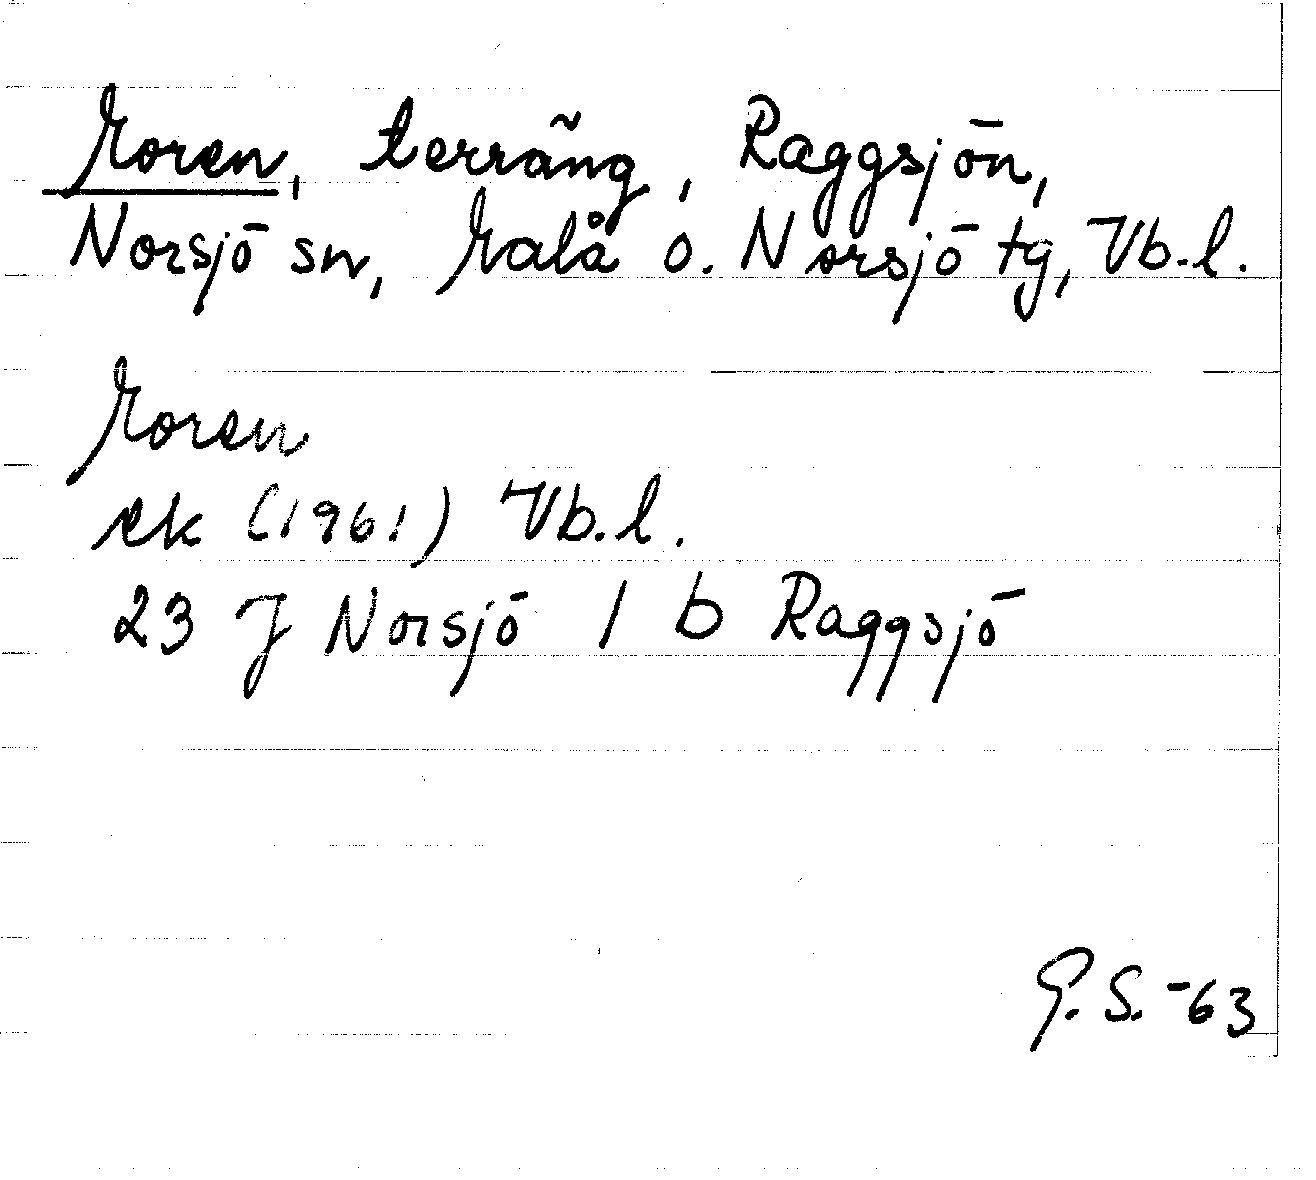 Moren, terräng, Raggsjön,
Norsjö sn, Malå o. Norsjö tg, Vb.l.
Moren
ek (1961) Vb.l.
23 J Norsjö 1 b Raggsjö
G.S. -63